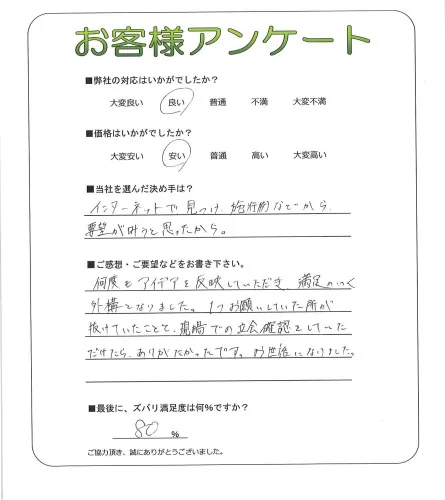 お客様アンケート
■弊社の対応はいかがでしたか?
大変良い 良い 普通 不満 大変不満
■価格はいかがでしたか?
大変安い 安い 普通 高い 大変高い
■当社を選んだ決め手は?
インターネットで見つけ 施行例などから、
要望が叶うと思ったから。
■ご感想・ご要望などをお書き下さい。
何度もアイデアを反映していただき、満足のいく
外構となりました。1つお願いしていた所が
抜けていたことと、現場での立会確認をしていた
だけたら、ありがたかったです。お世話になりました。
■最後に、ズバリ満足度は何%ですか?
80 %
ご協力頂き、誠にありがとうございました。